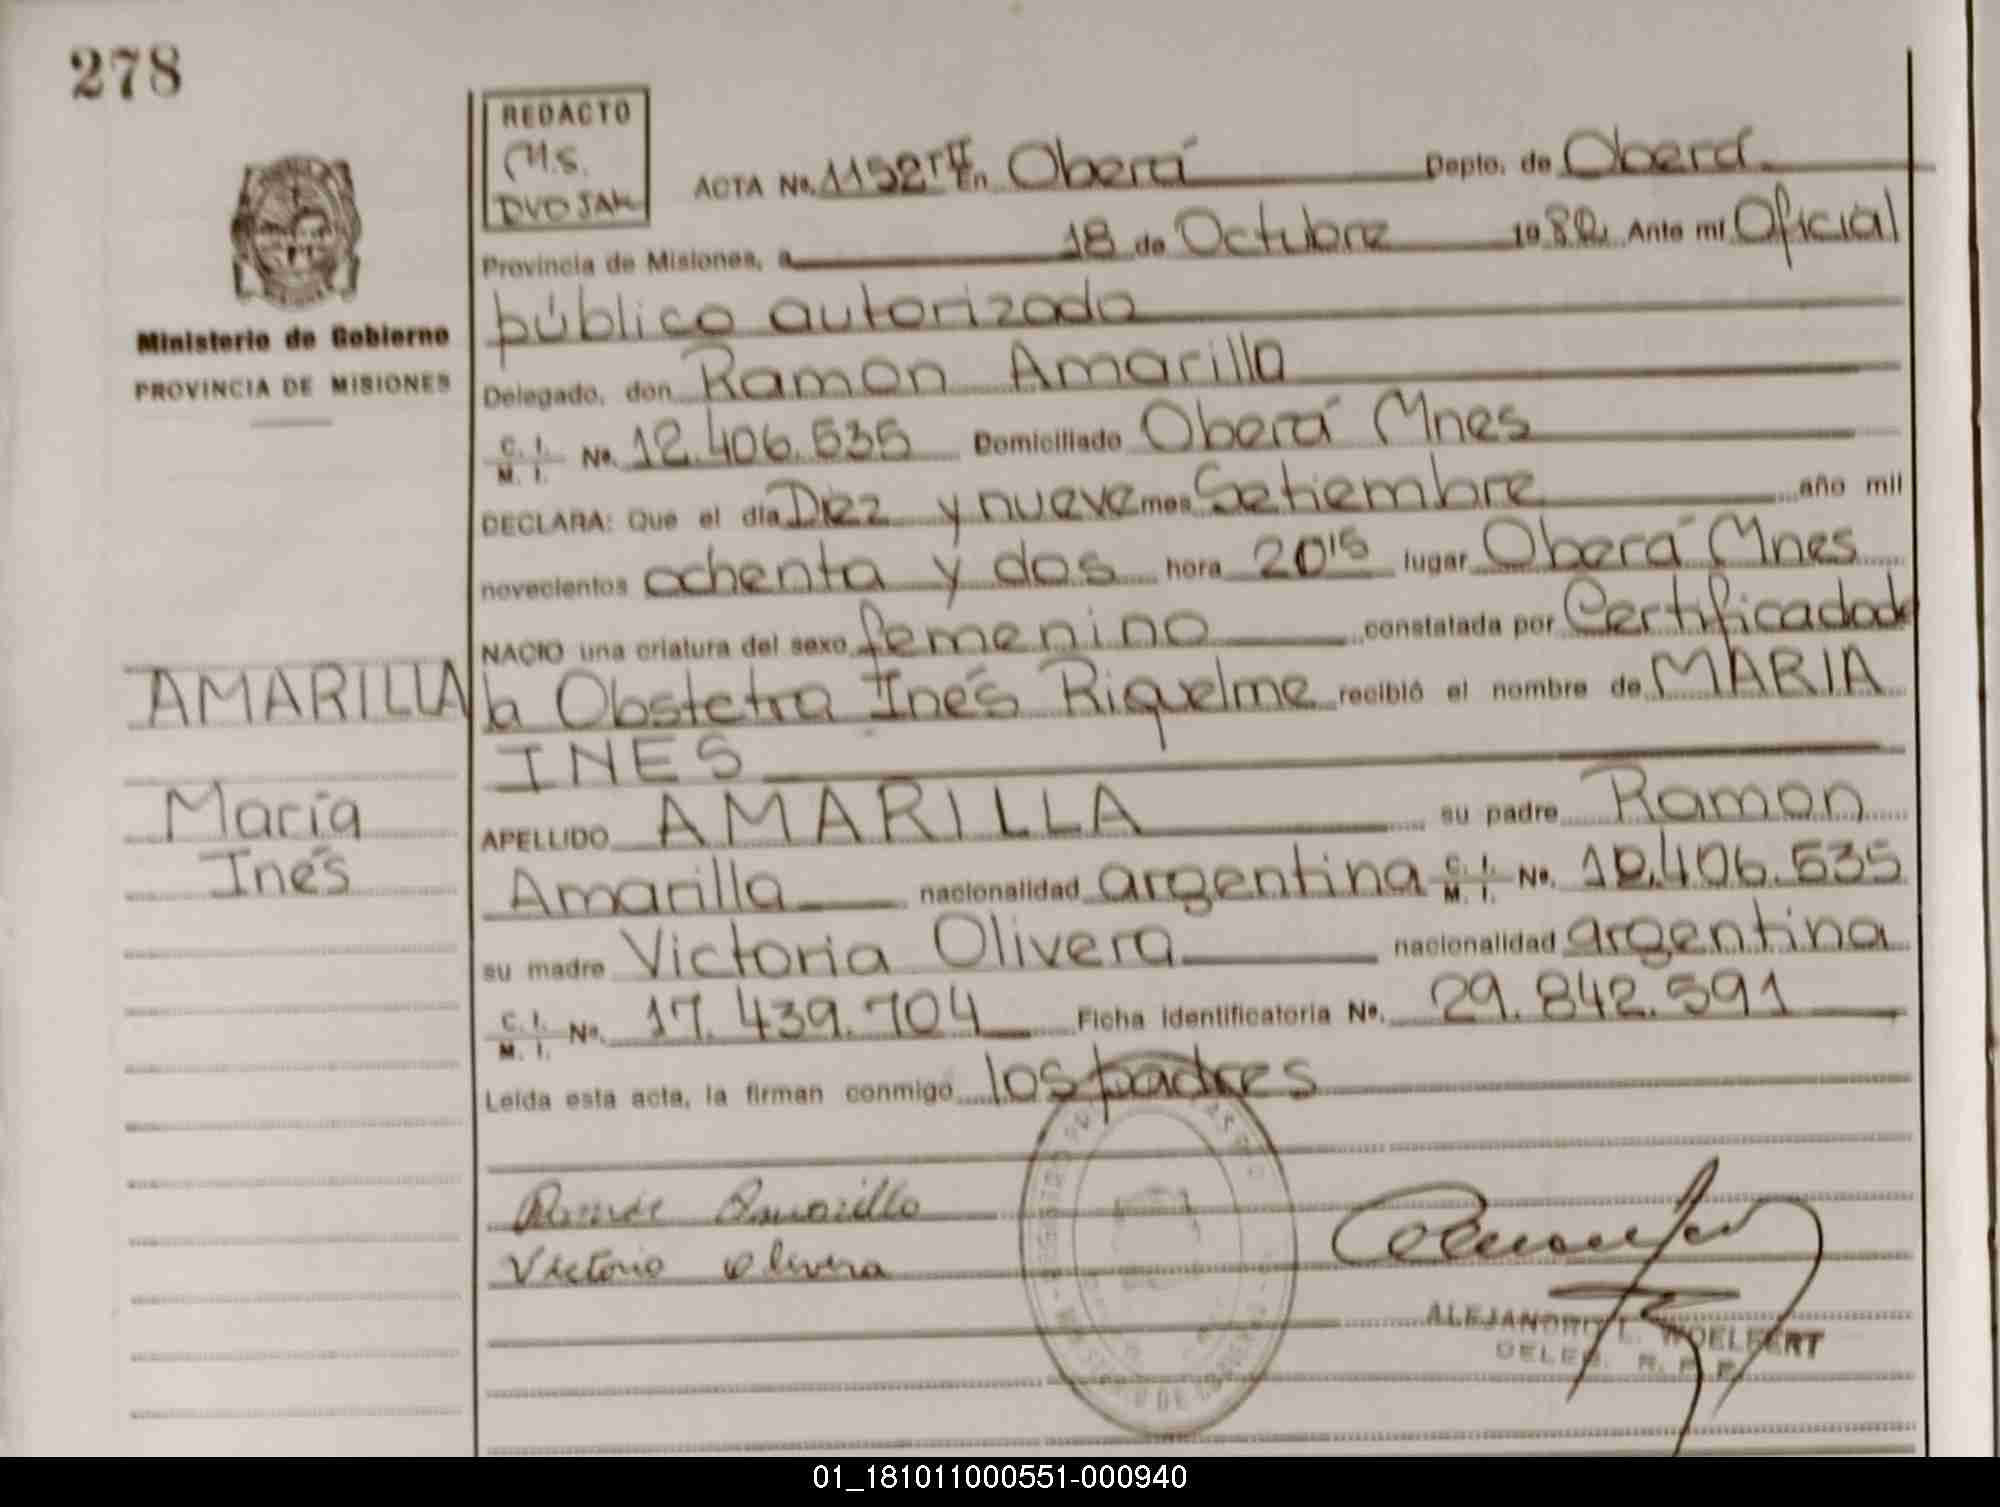 278
REDACTO
M.S.
DVOJAK
ACTA No. 1192 TºII En Oberá Depto. de Oberá
Provincia de Misiones, a 18 de Octubre 1982 Ante mí Oficial
público autorizado
Delegado, don Ramon Amarilla
C. I. M. I. No. 12.406.535 Domiciliado Oberá Mnes
DECLARA: Que el día Diez y nueve mes Setiembre año mil
novecientos ochenta y dos hora 20 15 lugar Oberá Mnes
NACIO una criatura del sexo femenino constatada por Certificado de
la Obstetra Inés Riquelme recibió el nombre de MARIA
INES
APELLIDO AMARILLA su padre Ramon
Amarilla nacionalidad argentina C. I. M. I. No. 12.406.535
su madre Victoria Olivera nacionalidad argentina
C. I. M. I. No. 17.439.704 Ficha identificatoria No. 29.842.591
Leída esta acta, la firman conmigo los padres
Ministerio de Gobierno
PROVINCIA DE MISIONES
AMARILLA
María
Inés
Amarillo
Victorio Olivera
ALEJANDRO L. WOELFERT
DELEG. R. P. P.
01_181011000551-000940